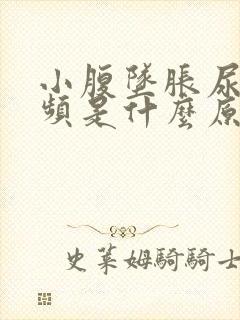 小腹墜脹尿
頻是什麼原
史萊姆騎騎士